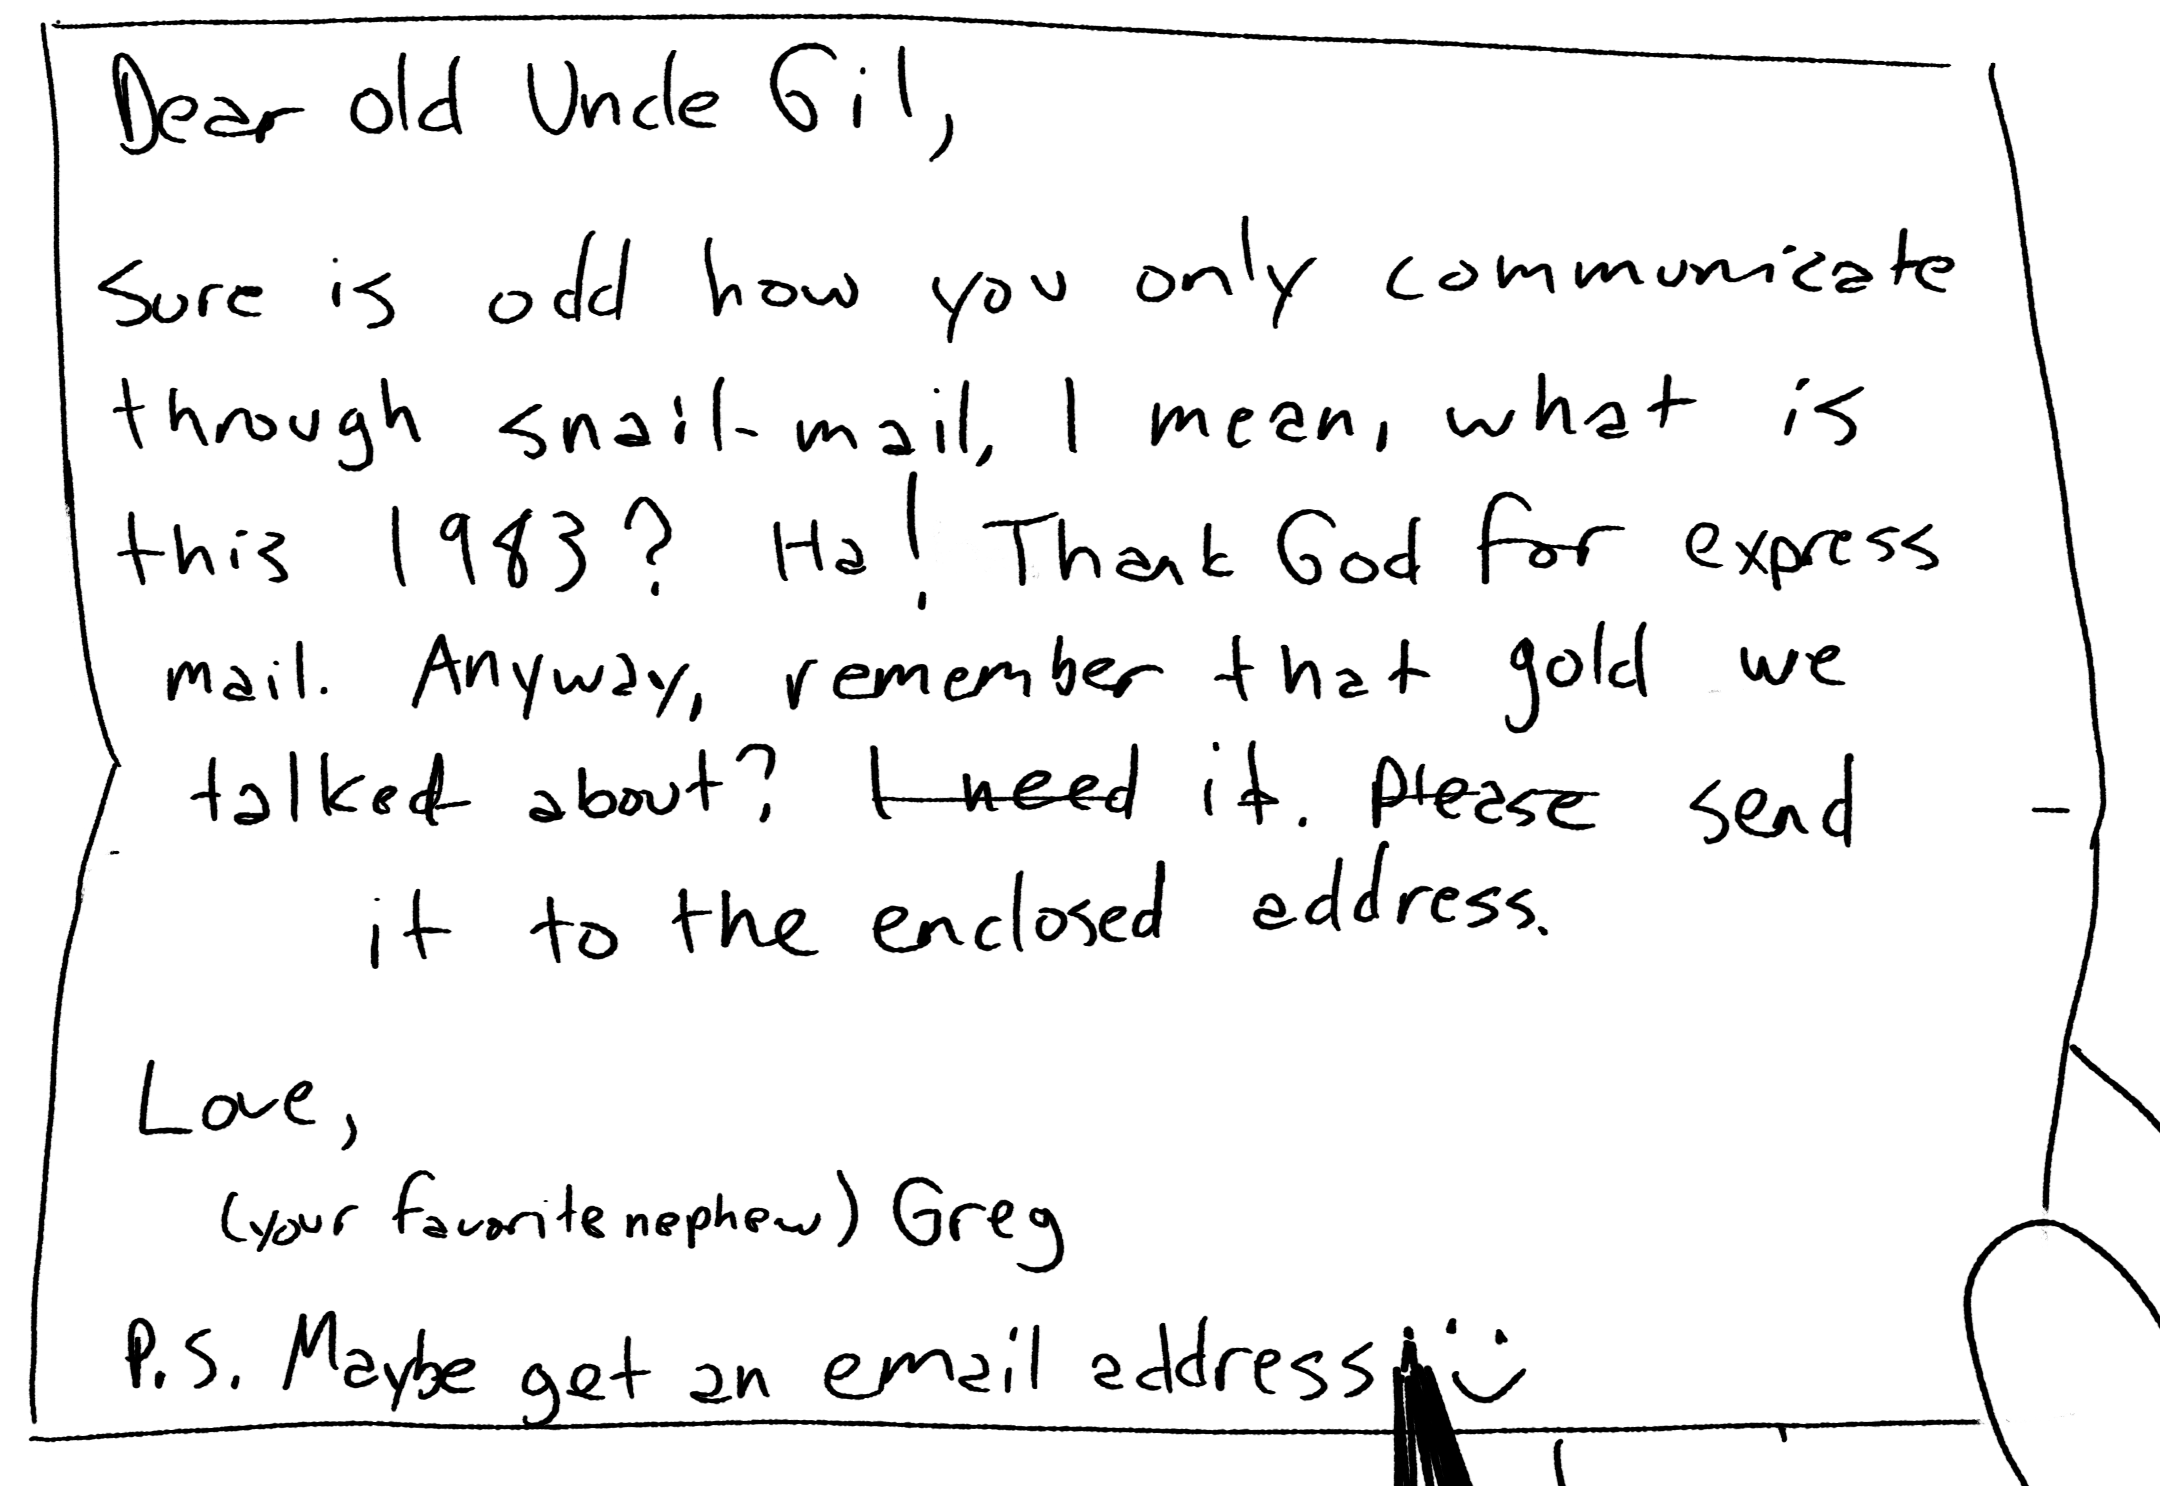 Dear old Uncle Gil,
Sure is odd how you only communicate
through snail-mail, I mean, what is
this 1983? Ha! Thank God for express
mail. Anyway, remember that gold we
talked about? I need it. Please send
it to the enclosed address.
Love,
(your favorite nephew) Greg
P.S. Maybe get an email address! :)